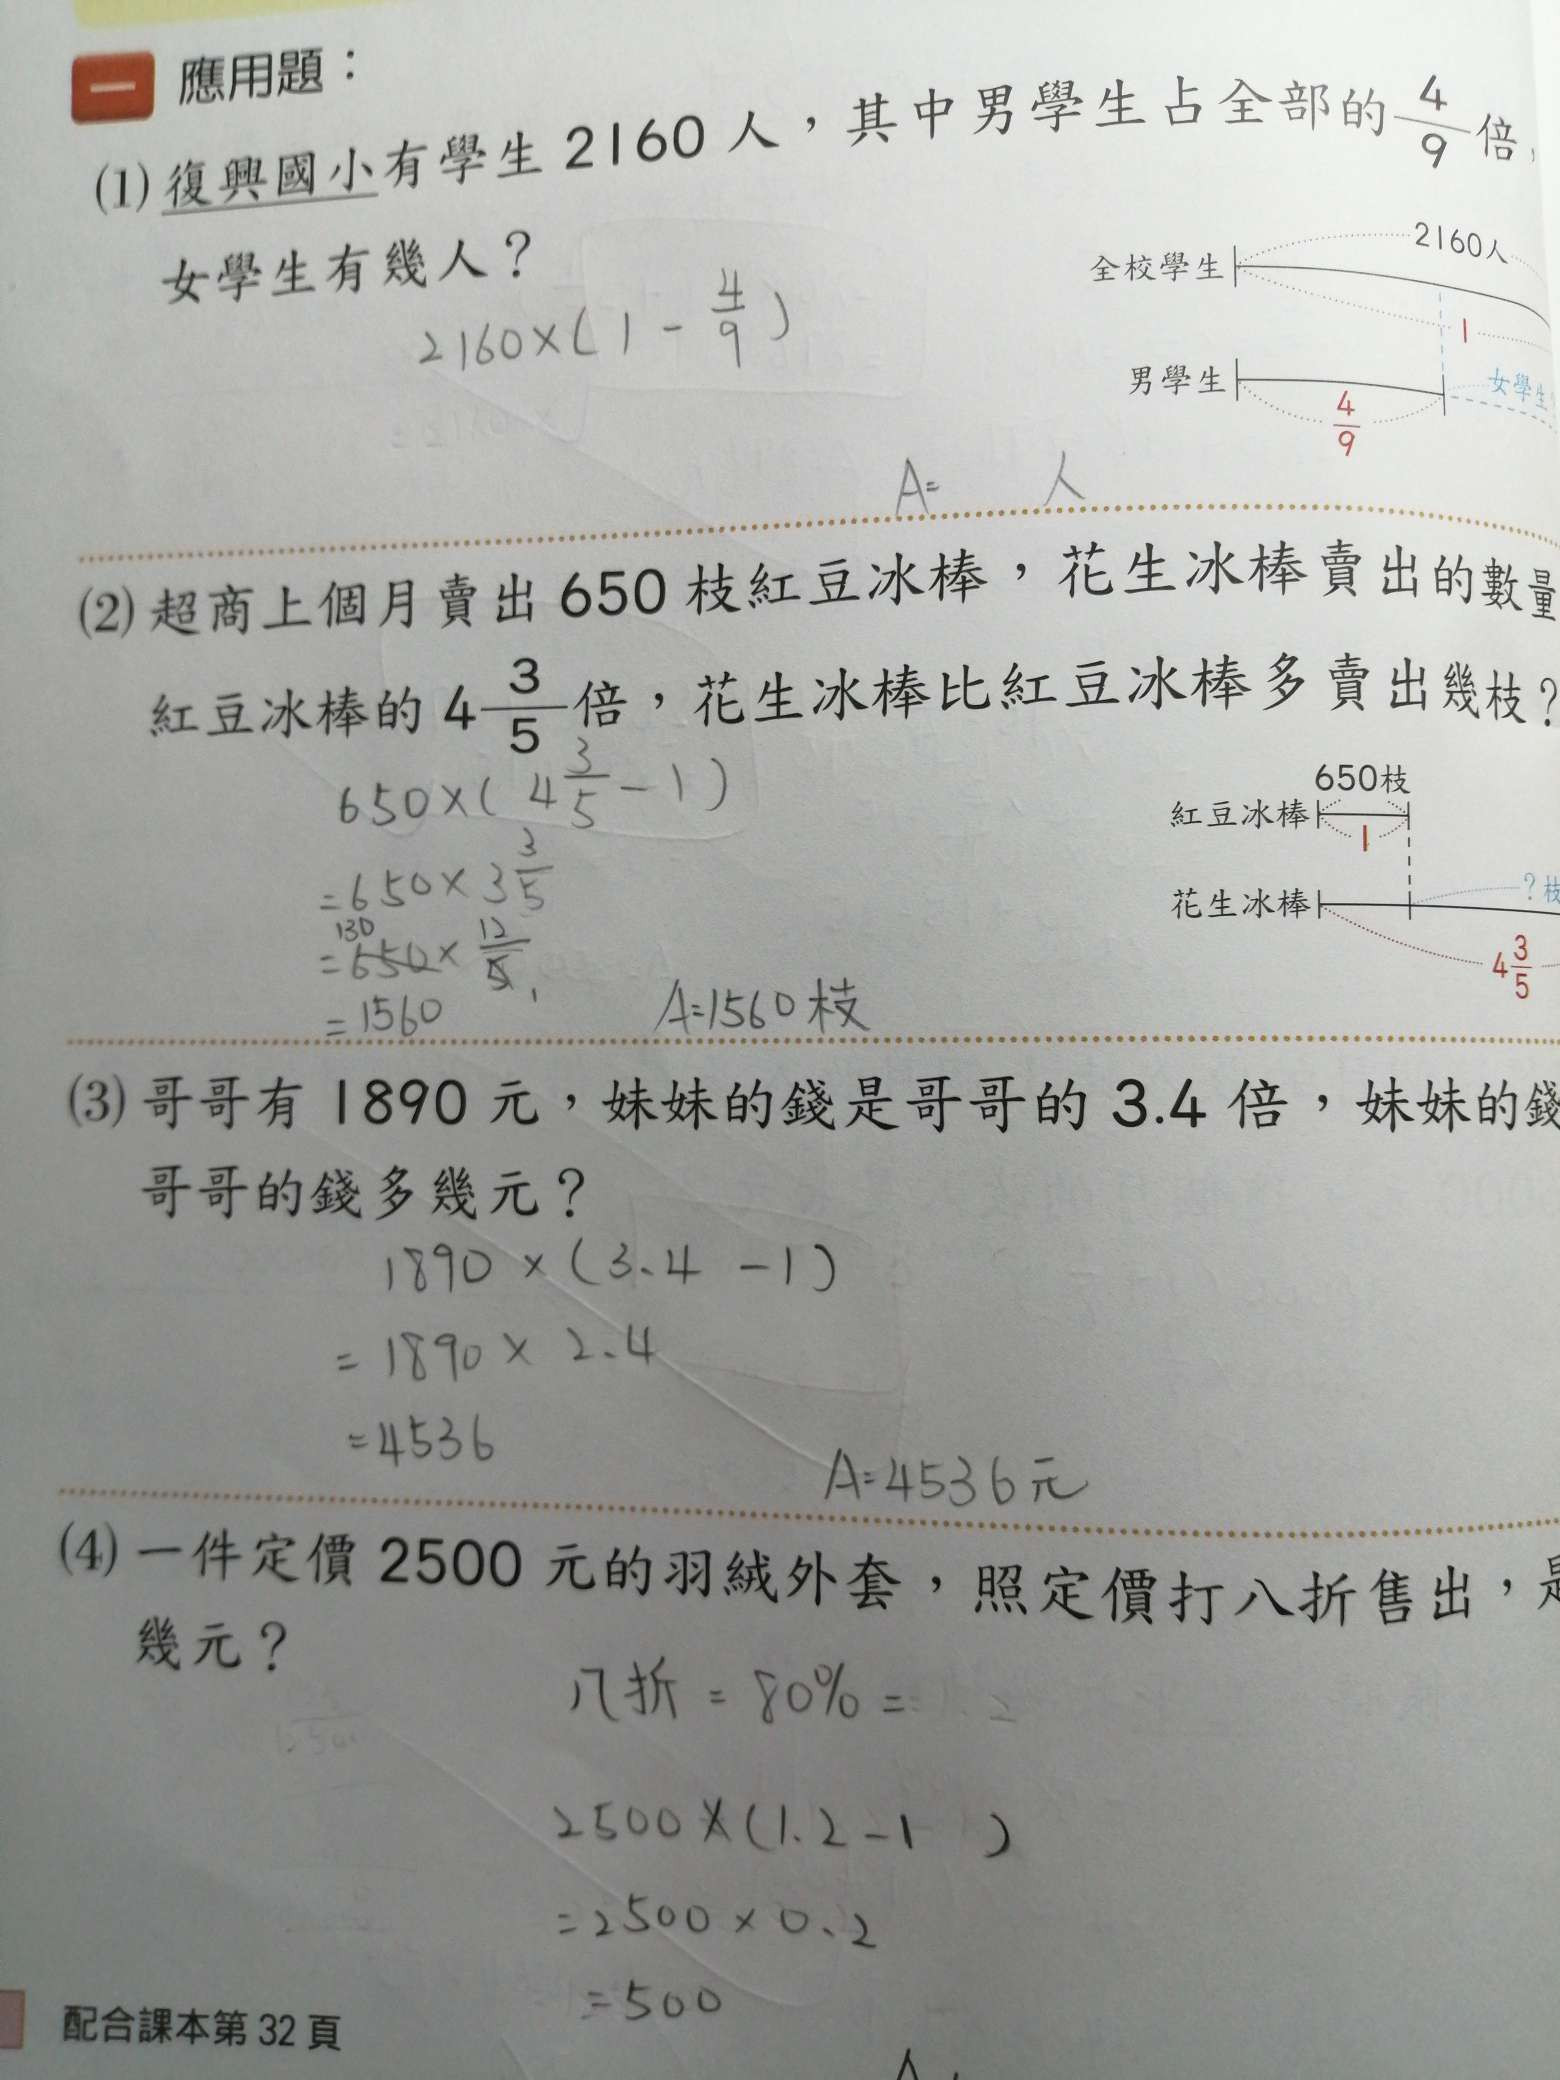 一 應用題：
(1) 復興國小有學生 2160 人，其中男學生占全部的 4/9 倍，
女學生有幾人？
2160×(1-4/9)
全校學生 2160人
1
男學生 4/9 女學生
A= 人
(2) 超商上個月賣出 650 枝紅豆冰棒，花生冰棒賣出的數量
紅豆冰棒的 4 3/5 倍，花生冰棒比紅豆冰棒多賣出幾枝？
650×(4 3/5 -1)
=650×3 3/5
130
=650×12/5 1
=1560
A=1560枝
650枝
紅豆冰棒
1
花生冰棒 ？枝
4 3/5
(3) 哥哥有 1890 元，妹妹的錢是哥哥的 3.4 倍，妹妹的錢
哥哥的錢多幾元？
1890×(3.4-1)
=1890×2.4
=4536
A=4536元
(4) 一件定價 2500 元的羽絨外套，照定價打八折售出，是
幾元？
八折=80%=
2500×(1.2-1 )
=2500×0.2
=500
配合課本第 32 頁